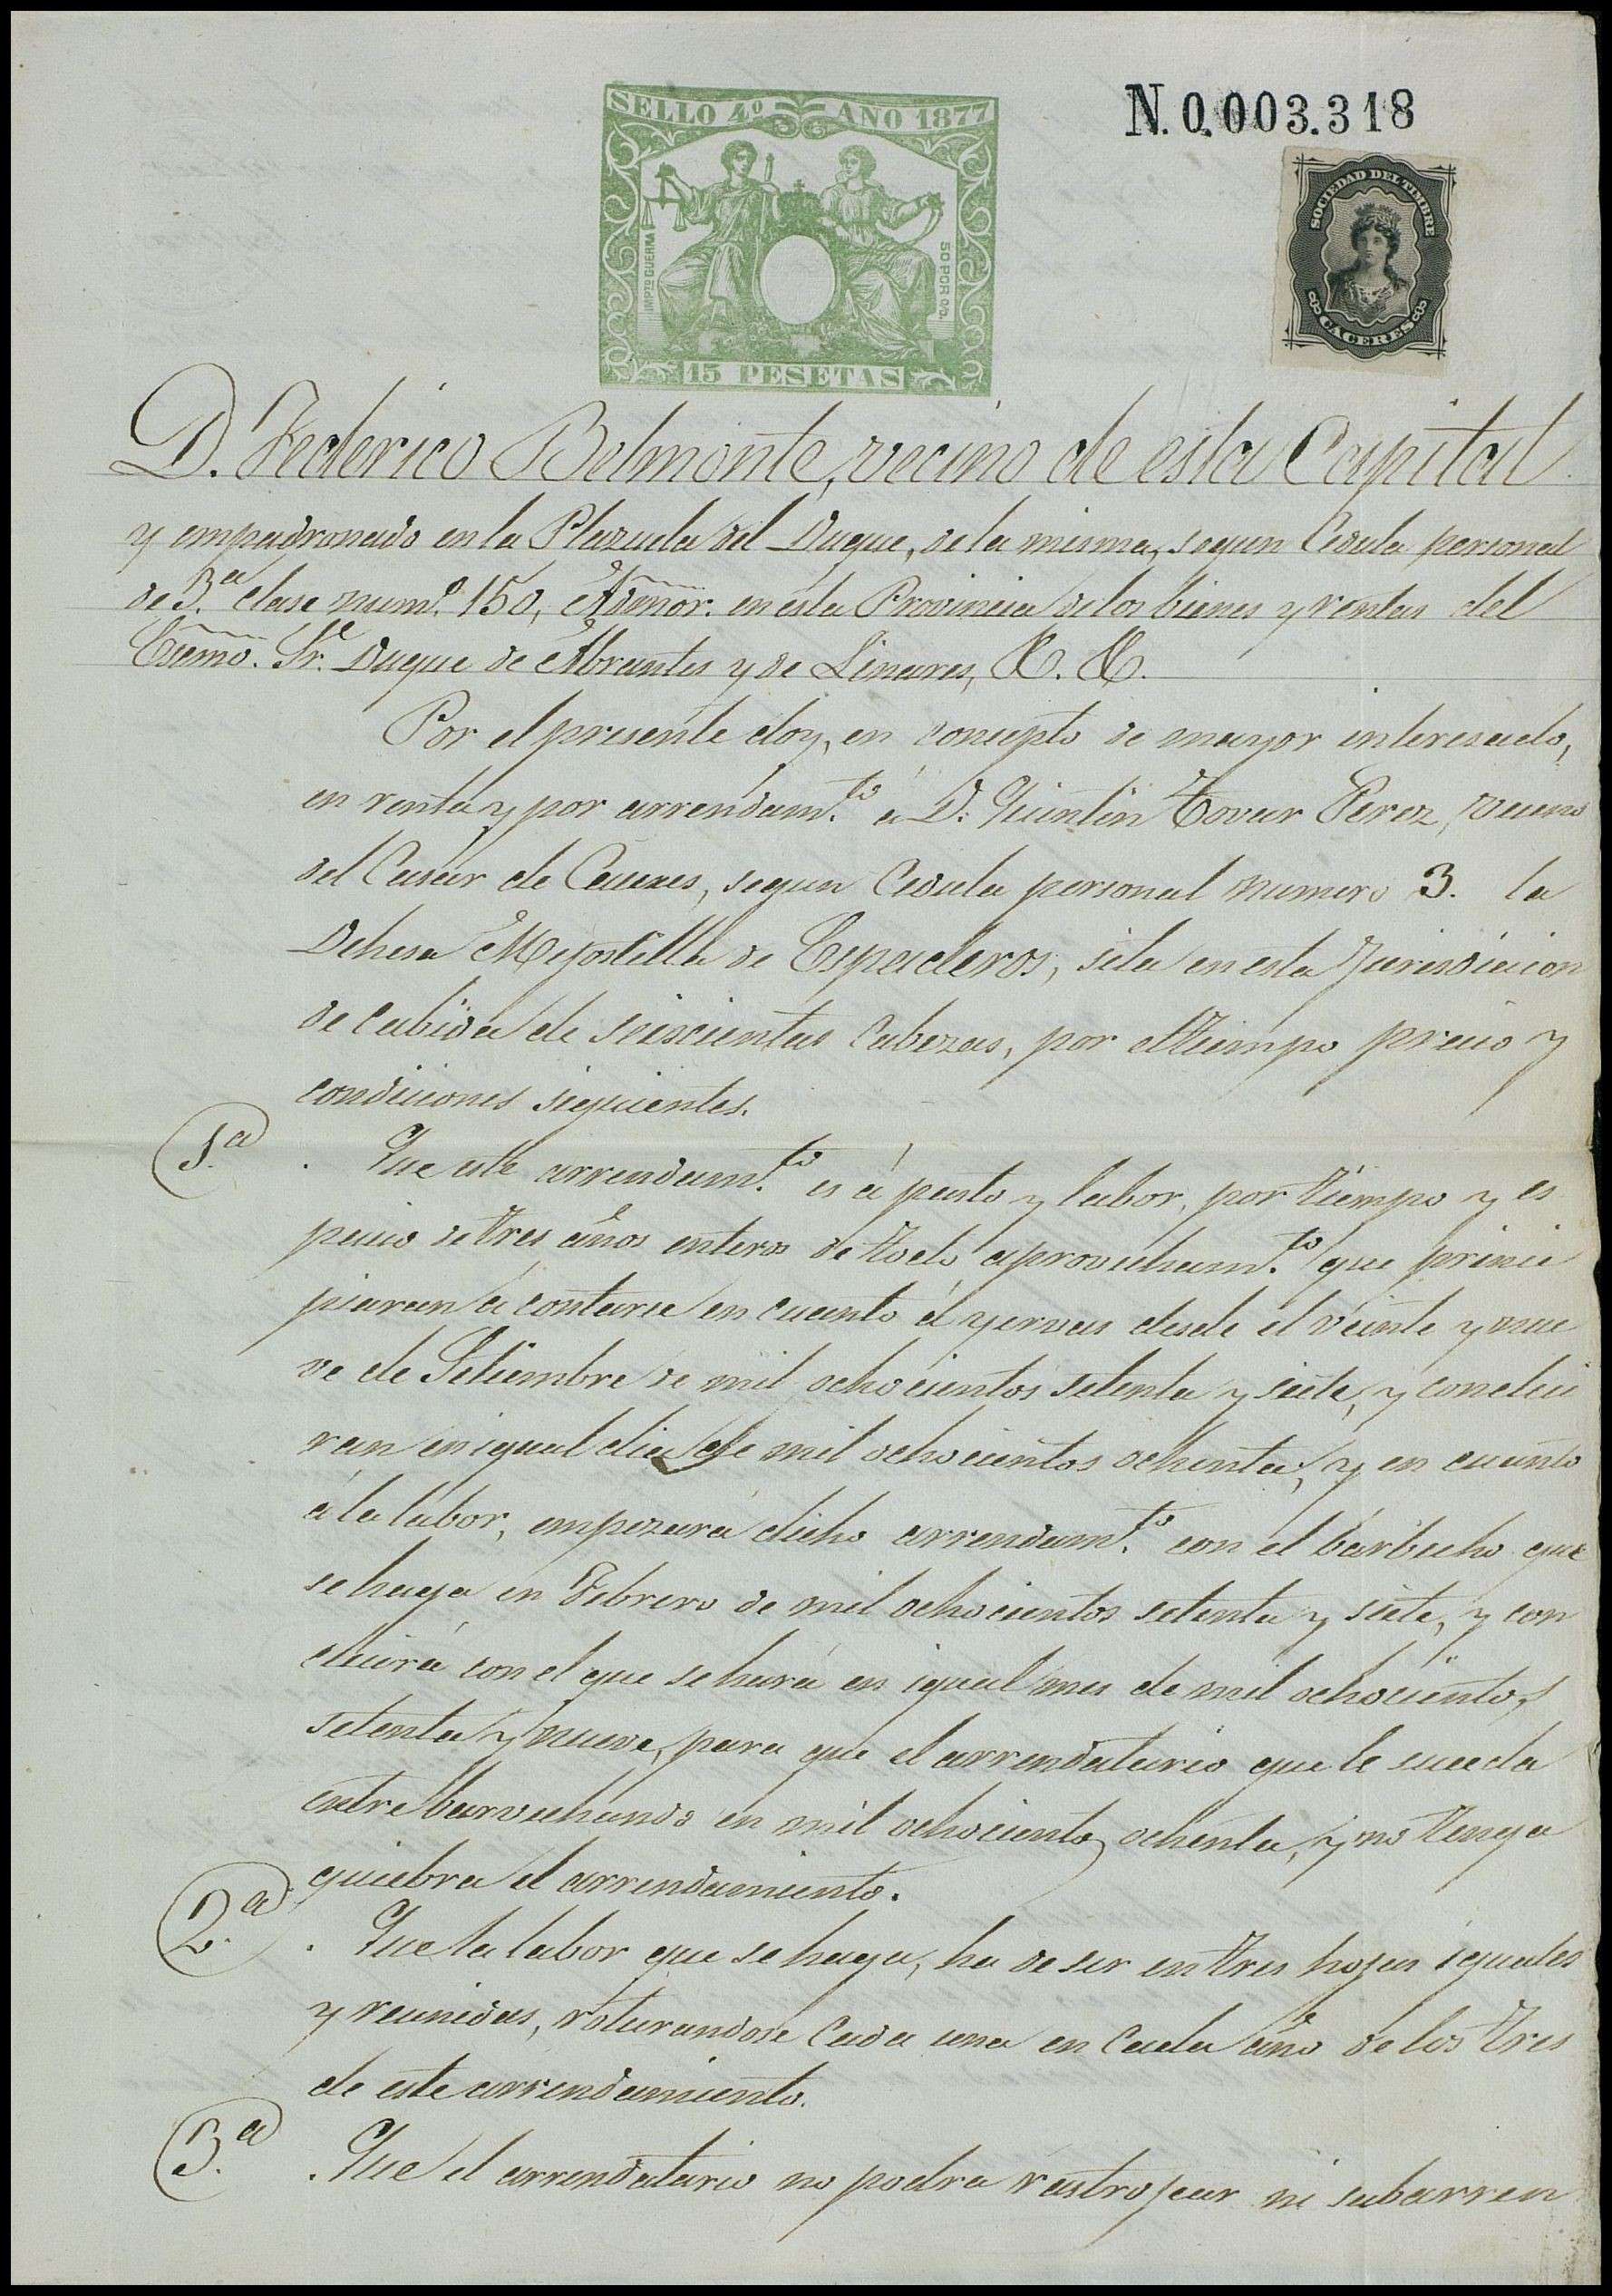 SELLO 4º AÑO 1877
N. 0.003.318
SOCIEDAD DEL TIMBRE
IMPTO GUERRA
50 POR 0/0.
CACERES
15 PESETAS
D. Federico Belmonte, vecino de esta Capital
y empadronado en la Plazuela del Duque, de la misma, segun Cedula personal
de 3.ª clase num.º 150, Admor. en esta Provincia de los bienes y rentas del
Excmo. Sr. Duque de Abrantes y de Linares, &. &.
Por el presente doy, en concepto de mayor interesado,
en renta y por arrendam.to á D. Quintin Tovar Perez, vecino
del Casar de Caceres, segun Cedula personal numero 3. la
Dehesa Mogostilla de Espaderos, sita en esta Jurisdicion
de cabida de seiscientas Cabezas, por el tiempo precio y
condiciones siguientes.
1.ª . Que este arrendam.to es á pasto y labor, por tiempo y es
pacio de tres años enteros de todo aprovecham.to que princi
piaran á contarse en cuanto á yervas desde el veinte y nue
ve de Setiembre de mil ochocientos setenta y siete, y conclui
ran en igual dia de mil ochocientos ochenta; y en cuanto
á la labor, empezará dicho arrendam.to con el barbecho que
se haga en Febrero de mil ochocientos setenta y siete, y con
cluirá con el que se hará en igual mes de mil ochocientos
setenta y nueve, para que el arrendatario que le suceda
entre barvechando en mil ochocientos ochenta, y no tenga
quiebra el arrendamiento.
2.ª . Que la labor que se haga, ha de ser en tres hojas iguales
y reunidas, roturandose cada una en cada año de los tres
de este arrendamiento.
3.ª . Que el arrendatario no podra rastrojear ni subarren